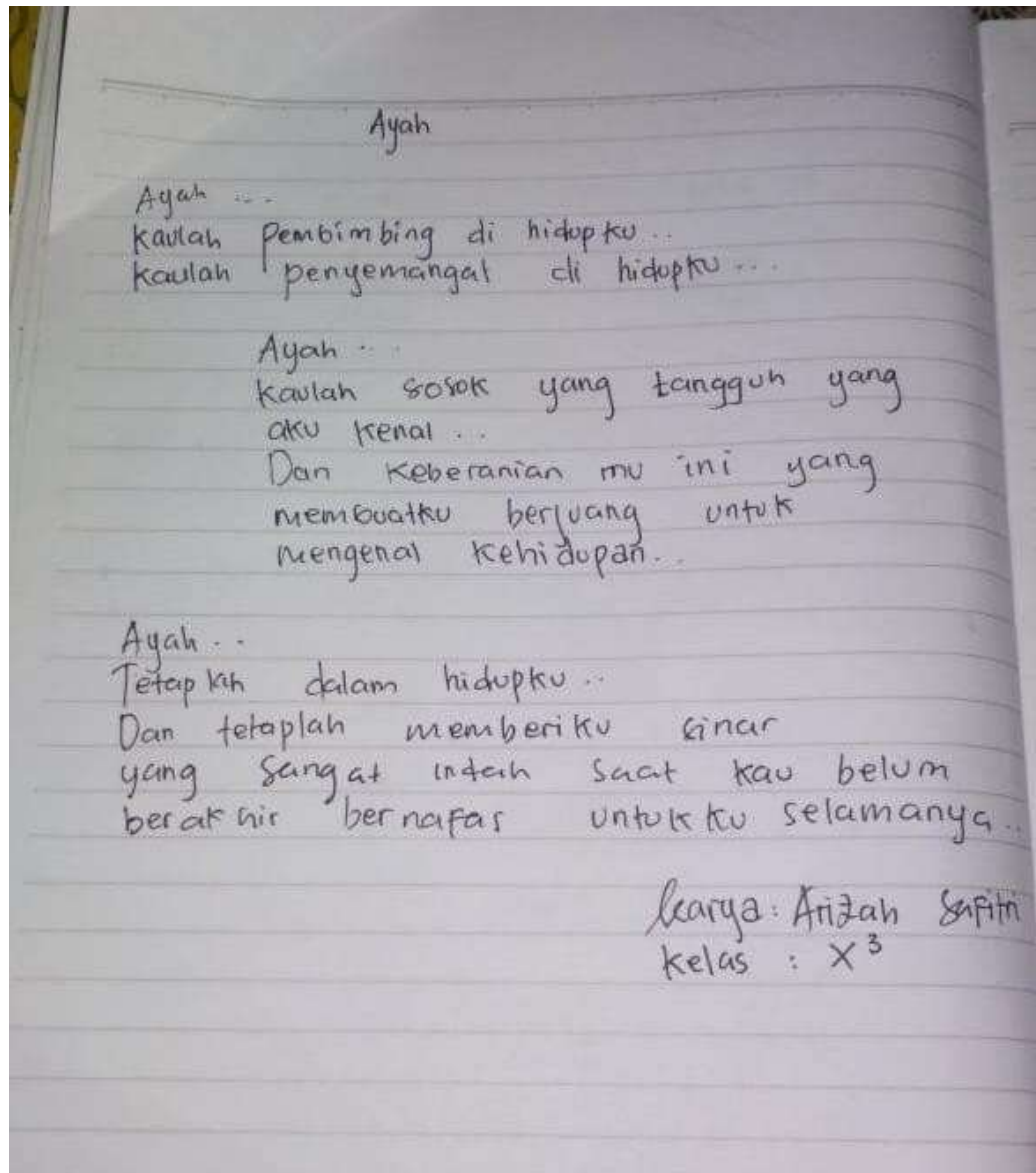 Ayah
Ayah ...
kaulah pembimbing di hidupku..
kaulah penyemangat di hidupku...
Ayah ...
kaulah sosok yang tangguh yang
aku kenal ..
Dan keberanian mu ini yang
membuatku berjuang untuk
mengenal kehidupan..
Ayah ..
Tetap lah dalam hidupku ..
Dan tetaplah memberiku sinar
yang sangat indah saat kau belum
berakhir bernafas untukku selamanya..
karya: Arizah Safitri
kelas : X³